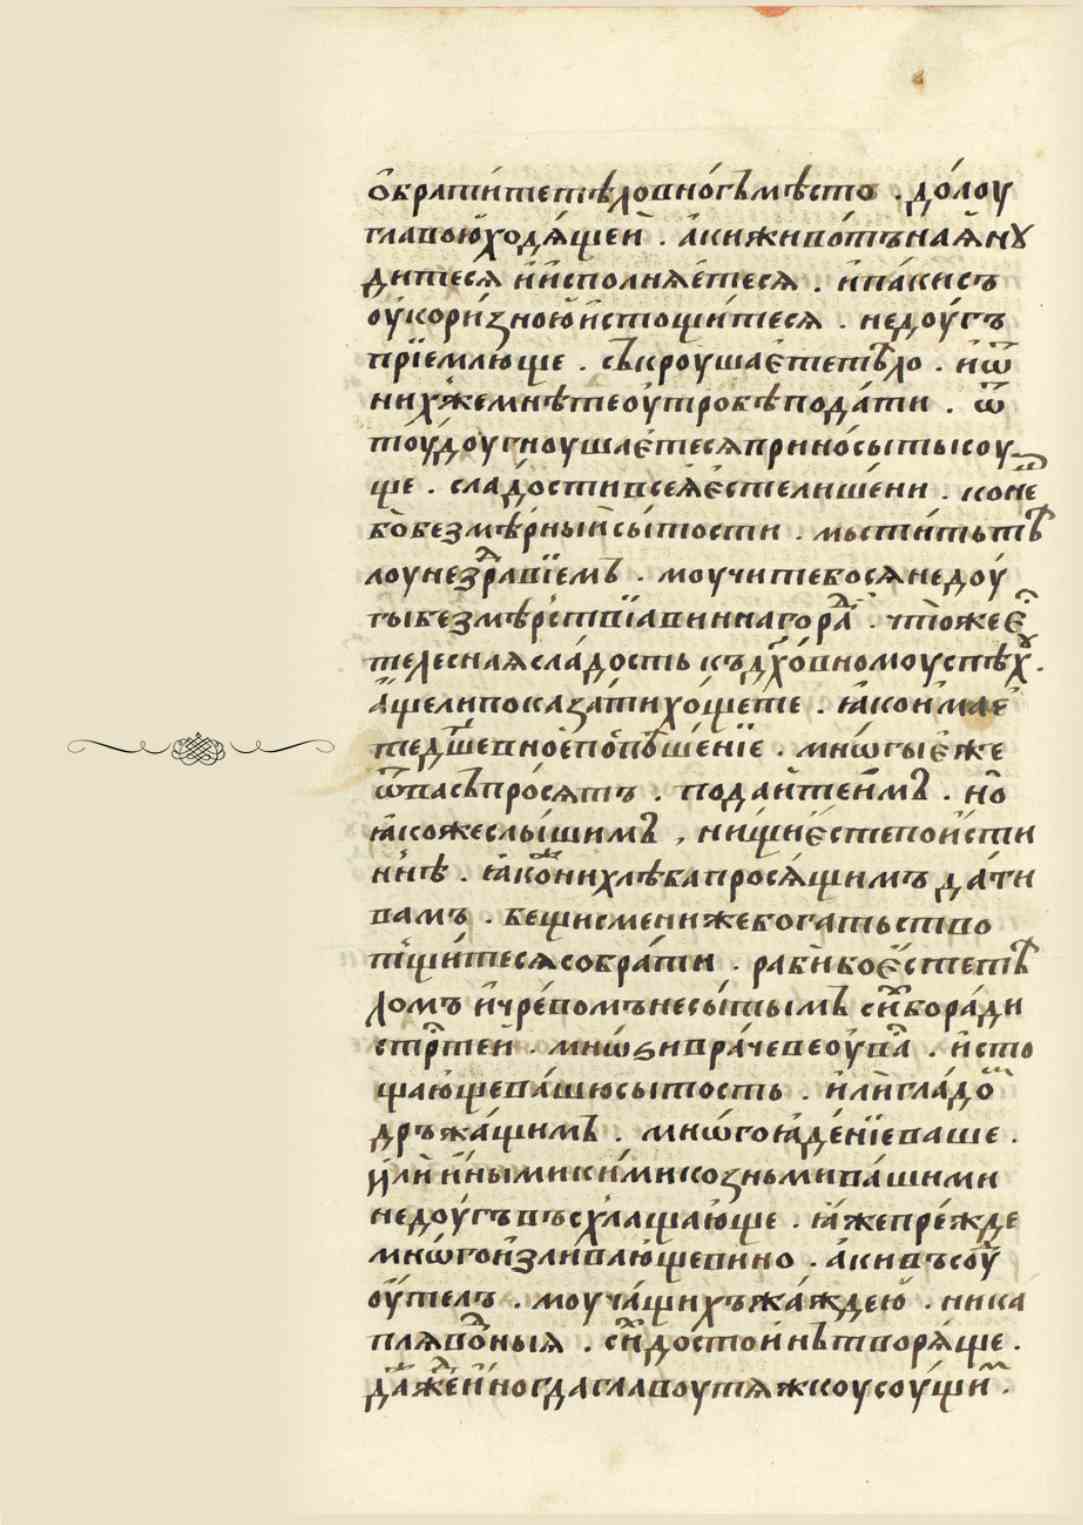 ѻ҆брати́тетѣловно́гъмѣсто . до́лоу
главою̀ходѧ́щеи . а҆киживо́тънаѧ҆нꙋ
дитесѧ и҆и҆сполнѧ́етесѧ . и҆па́кисъ
оу҆кори́зною҆и҆стощи́тесѧ . недоу́гъ
прїемлюще . съкроуша́ететѣло . и҆ѿ
ни́хжемнѣтеоу҆тробѣпода́ти . ѿ
тоу́доугноушае́тесѧприно́сытысоу
ще . сла́достивсеѧ҆є҆стелише́ни . коне
бобезмѣ́рныи҆сы́тости . мьсти́тьтѣ
лоунездравїемъ . моучитебосѧнедоу́
гыбезмѣрствїавиннагорад . что̀жеє҆
телеснаѧсла́дость къдхо́вномоуспѣхꙋ .
а҆́щелипоказа́тихо́щете . ꙗ҆кои҆мае
тедше́вноепо́повше́нїе . мнѡ́гые҆же
ѿва́съпро́сѧтъ . пода́йтеи҆мъ . но
ꙗ҆кожеслы́шимъ , ни́щиє҆степои҆сти
ннѣ . ꙗ҆конихлѣбапросѧ́щимъ да́ти
вамъ . бещисмениже богатьство
тщи́тесѧсобра́ти . раби́боє҆стетѣ
ломъ и҆чре́вомънесы́тымъ сибора́ди
стртей . мнѡ́ѕивра́чевеоу҆ва . и҆сто
щаю́щева́шюсытость . и҆ли̇гла́до
дръжа́щимъ . мнѡ́гоꙗ҆де́нїеваше .
и҆ли̇и҆нымики́микозньмива́шими
недоу́гъвъсхлаща́юще . ꙗ҆́жепре́жде
мнѡ́гои҆зли́влю́щевино . а҆кивъсоу
оу҆телъ . моуча́щихъжа́ждею . ника́
плѧво́ныѧ . си́достои҆нѣтворѧ́ще .
да́жеи҆ногдаглавоутѧжкоусоу́щи .